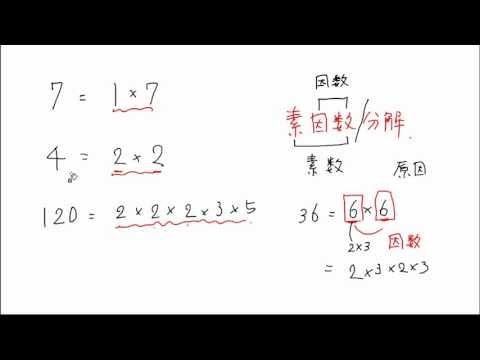 7 = 1×7
4 = 2×2
120 = 2×2×2×3×5
因数
素因数/分解
素数
原因
36 = 6×6
2×3
因数
= 2×3×2×3